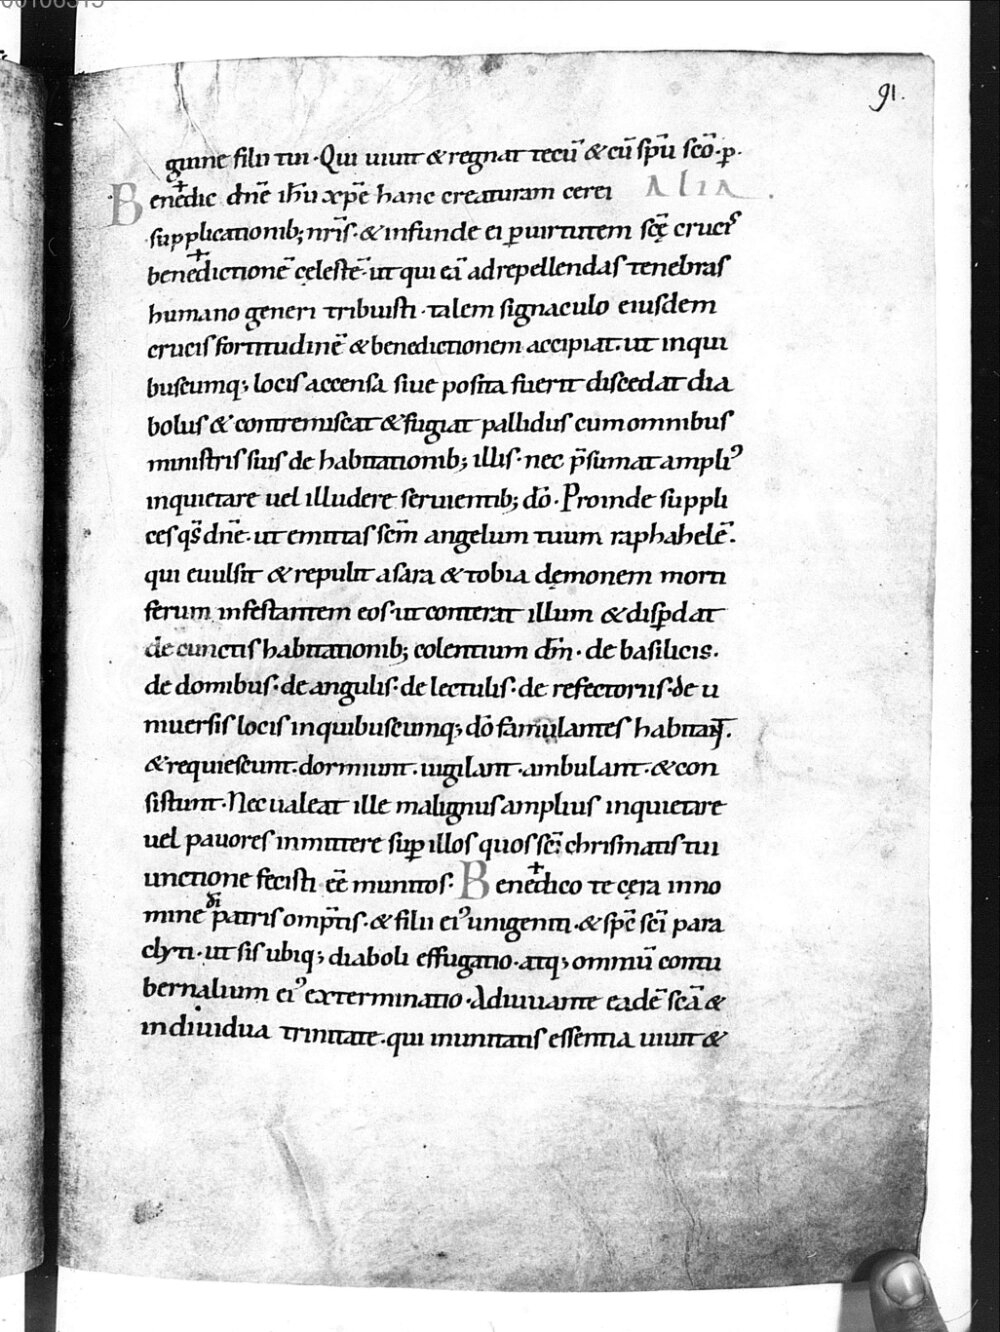 91.
guine filii tui · Qui uiuit & regnat tecū & cū sp̄u sc̄o · p̱.
Benedic dn̄e ih̄u xp̄e hanc creaturam cerei ALIA.
supplicationib; nr̄is · & infunde ei p̱ uirtutem sc̄ę crucis
benedictionē cęlestē · ut qui eā ad repellendas tenebras
humano generi tribuisti · talem signaculo eiusdem
crucis fortitudinē & benedictionem accipiat · ut in qui
buscumq; locis accensa siue posita fuerit discedat dia
bolus & contremiscat & fugiat pallidus cum omnibus
ministris suis de habitationib; illis · nec p̄sumat ampliꝰ
inquietare uel illudere seruientib; dō · Proinde suppli
ces qs̄ dn̄e · ut emittas sc̄m angelum tuum raphahelē.
qui euulsit & repulit a sara & tobia dęmonem morti
ferum infestantem eos · ut conterat illum & disp̱dat
de cunctis habitationib; colentium dm̄ · de basilicis.
de domibus · de angulis · de lectulis · de refectoriis · de u
niuersis locis in quibuscumq; dō famulantes habitant.
& requiescunt · dormiunt · uigilant · ambulant · & con
sistunt · Nec ualeat ille malignus amplius inquietare
uel pauores inmittere sup̱ illos quos sc̄i chrismatis tui
unctione fecisti eē munitos · Benedico te cęra in no
mine di patris omp̄tis · & filii eiꝰ unigeniti · & sp̄c sc̄i para
clyti · ut sis ubiq; diaboli effugatio · atq; omniū contu
bernalium eiꝰ exterminatio · Adiuuante eadē sc̄a &
indiuidua trinitate · qui in unitatis essentia uiuit &